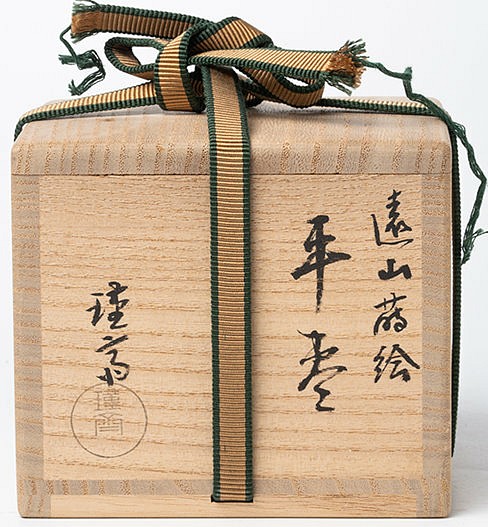 遠山蒔絵
平棗
瑾斎